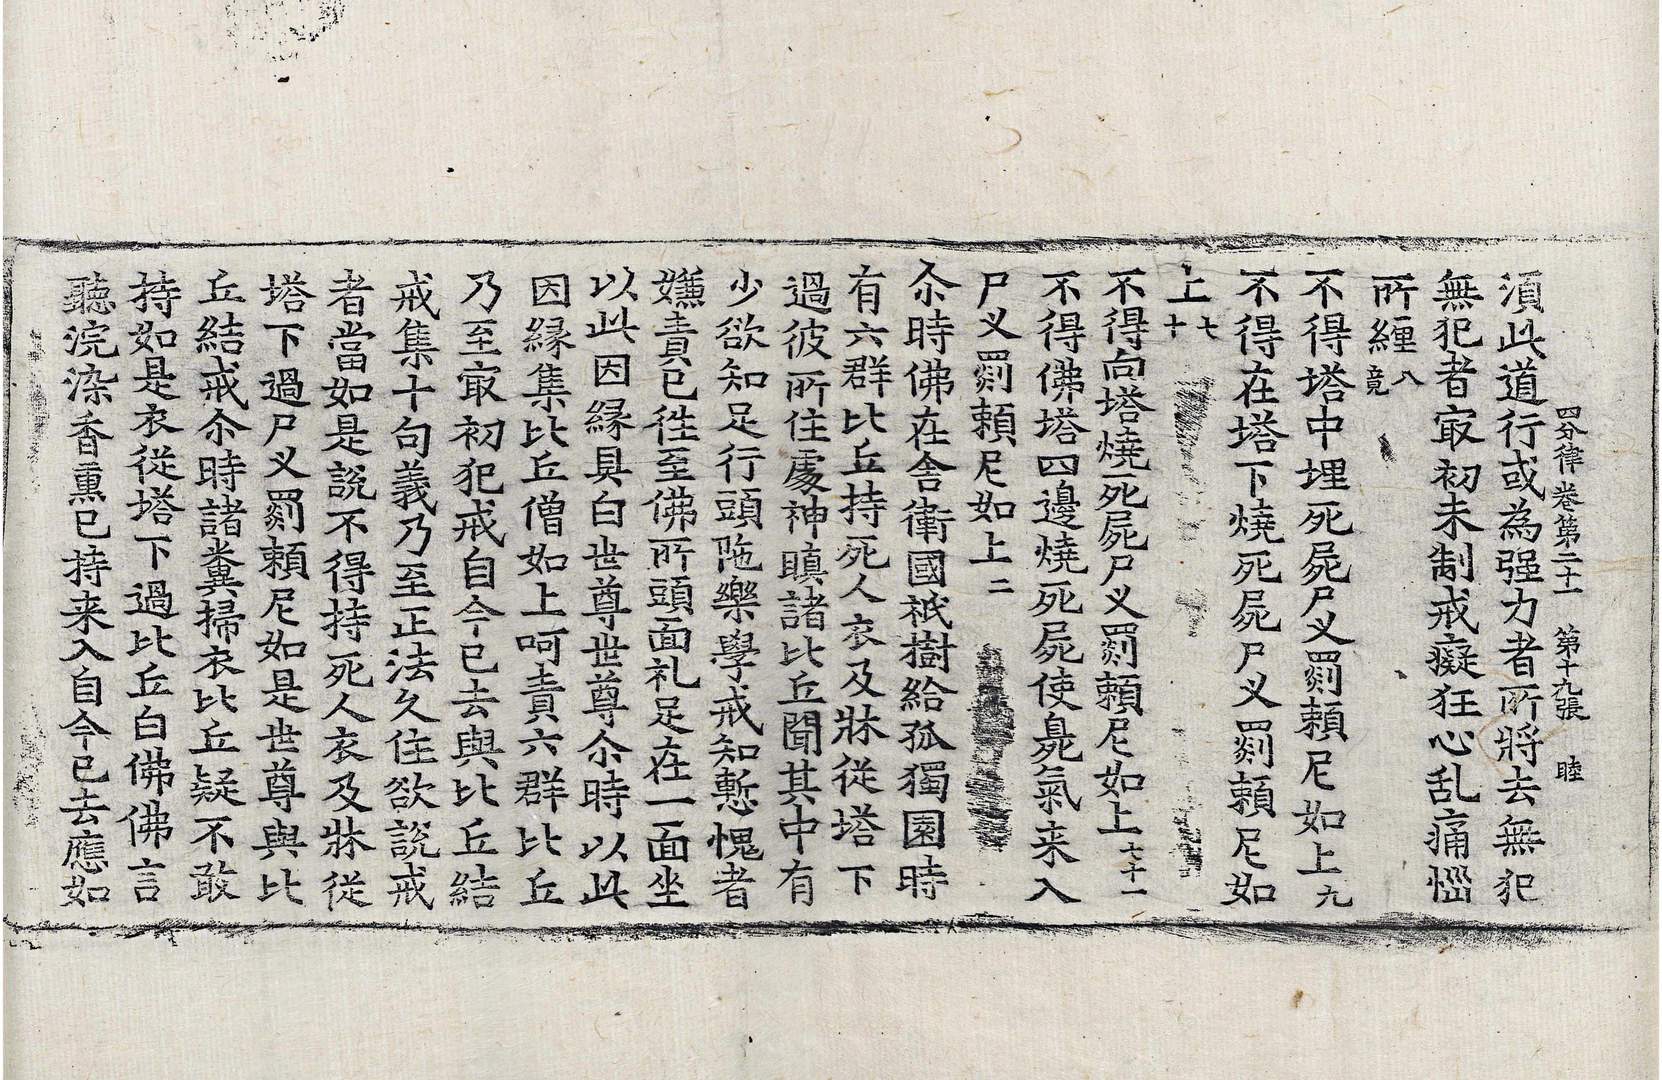 四分律卷第二十一 第十九張 睦
須此道行或為强力者所將去無犯
無犯者㝡初未制戒癡狂心乱痛惱
所纏八竟
不得塔中埋死屍尸叉罽頼尼如上九
不得在塔下燒死屍尸叉罽頼尼如
上七十
不得向塔燒死屍尸叉罽頼尼如上七十一
不得佛塔四邊燒死屍使臰氣来入
尸叉罽頼尼如上二
尒時佛在舎衛國祇樹給孤獨園時
有六群比丘持死人衣及牀從塔下
過彼所住處神瞋諸比丘聞其中有
少欲知足行頭陁樂學戒知慙愧者
嫌責已徃至佛所頭面礼足在一面坐
以此因縁具白世尊世尊尒時以此
因縁集比丘僧如上呵責六群比丘
乃至㝡初犯戒自今已去與比丘結
戒集十句義乃至正法久住欲說戒
者當如是說不得持死人衣及牀從
塔下過尸叉罽頼尼如是世尊與比
丘結戒尒時諸糞掃衣比丘疑不敢
持如是衣從塔下過比丘白佛佛言
聽浣染香熏已持来入自今已去應如